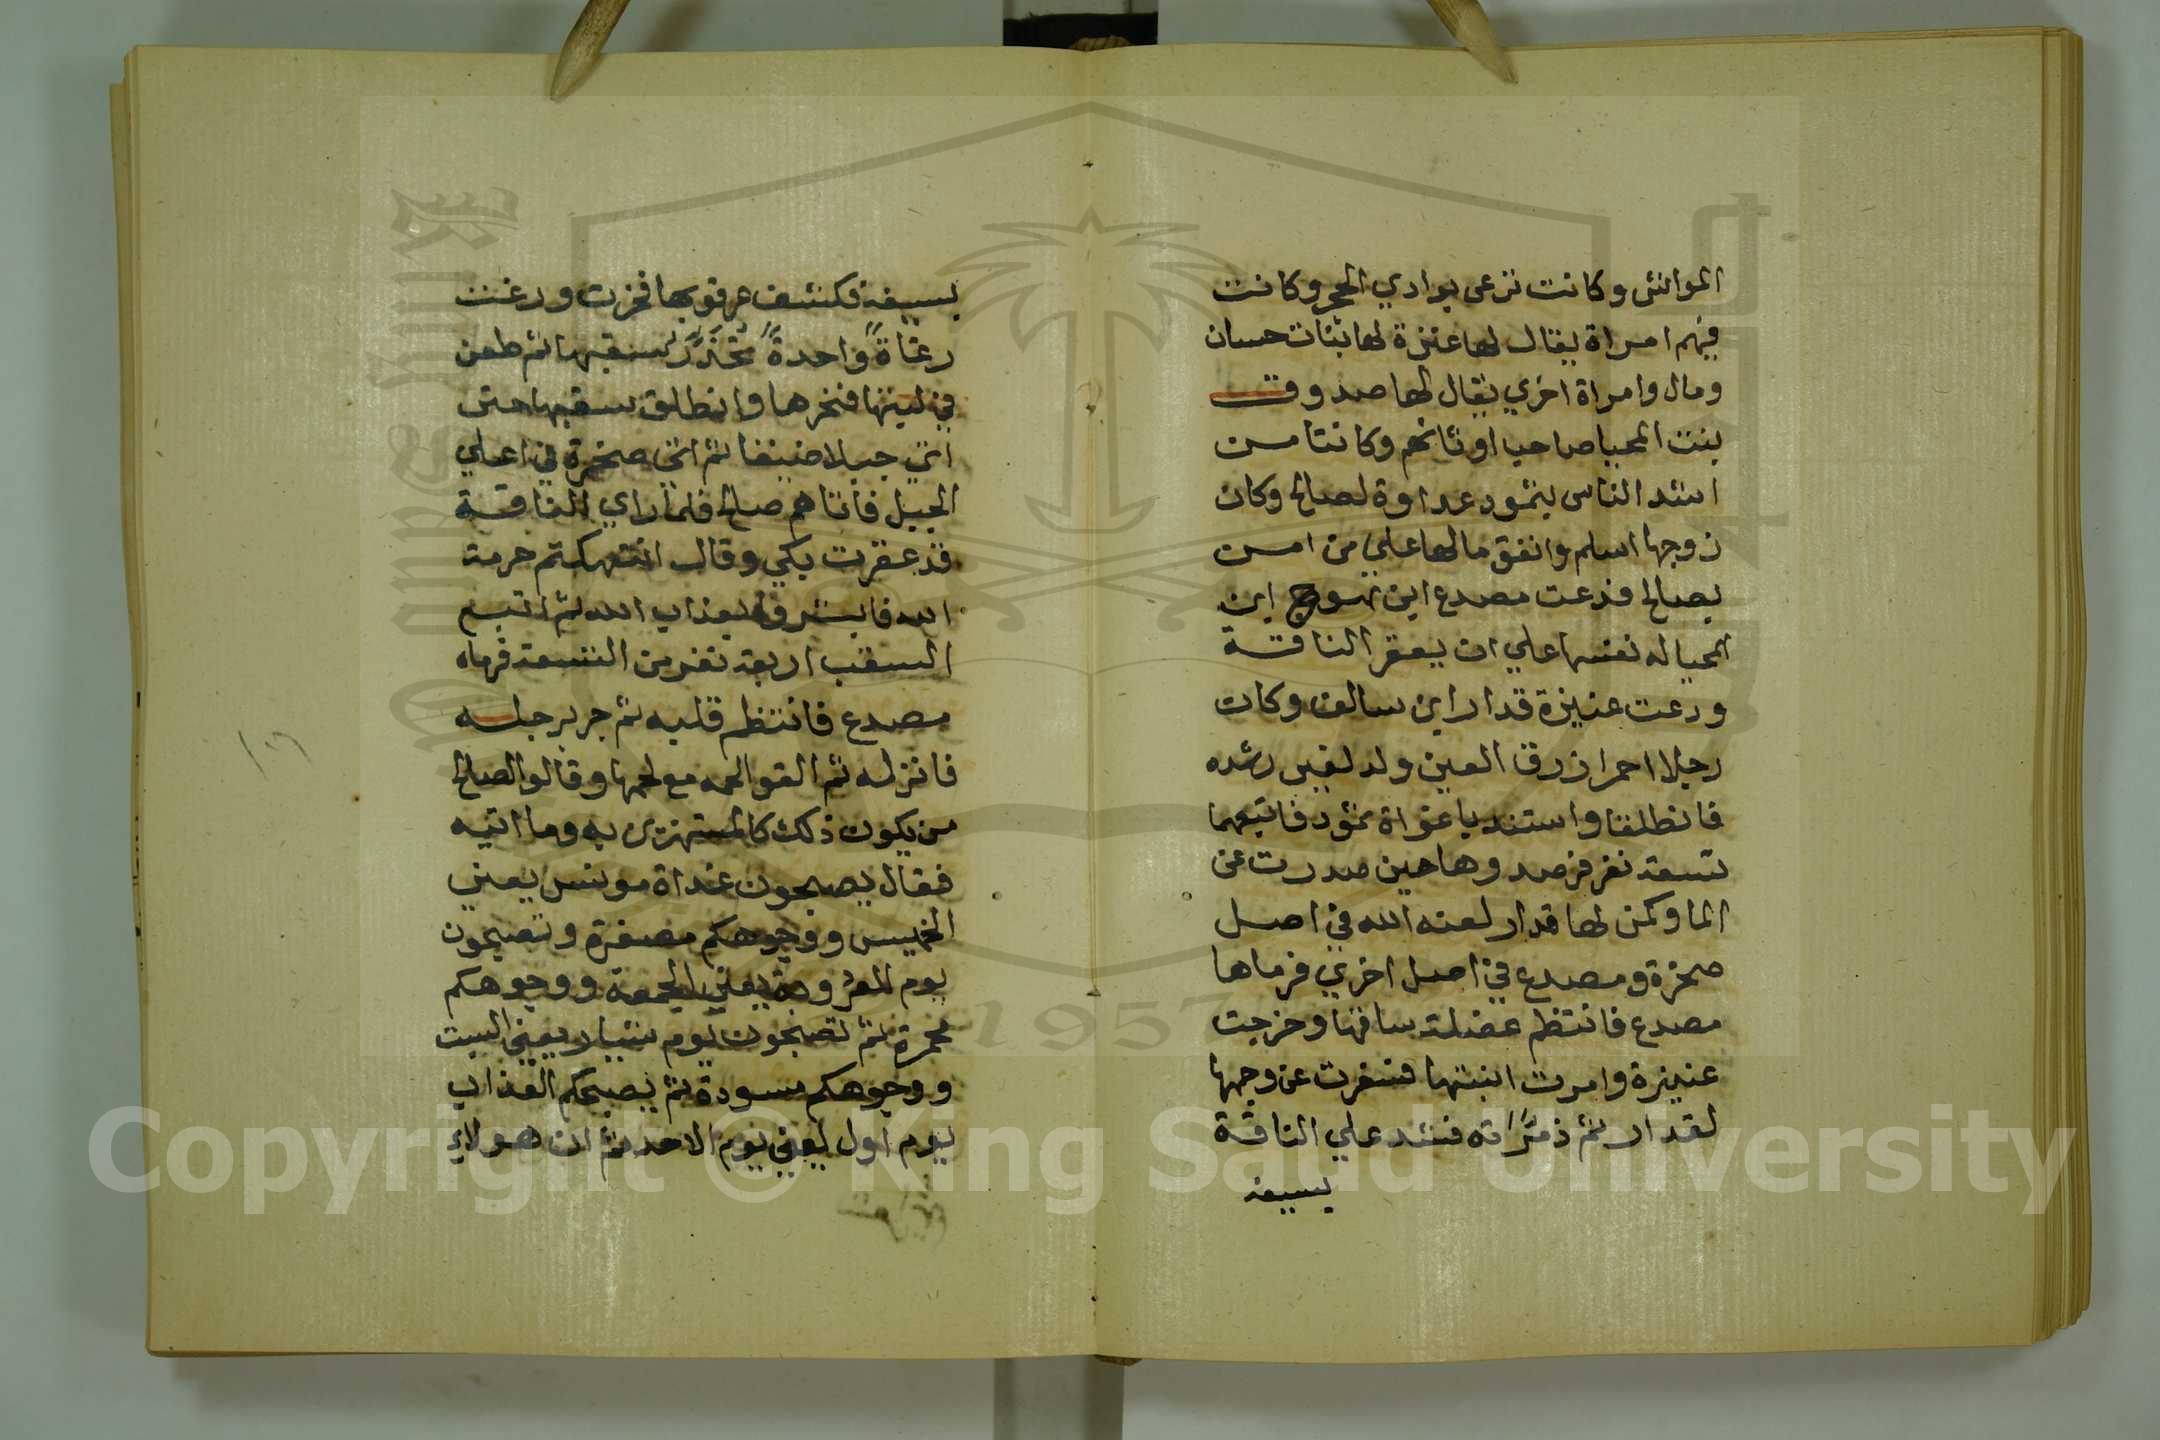 المواشي وكانت ترعى بوادي الحجر وكانت
فيهم امراة يقال لها عنزة لها بنات حسان
ومال وامراة اخري يقال لها صدوق
بنت المحيا صاحب اوثانهم وكانتا من
اشد الناس بثمود عداوة لصالح وكان
زوجها اسلم وانفق مالها علي من امن
بصالح فدعت مصدع ابن نهوج ابن
المحيا له نفسها علي ان يعقر الناقة
ودعت عنيزة قدار ابن سالف وكان
رجلا احمر ازرق العين ولد لغير رشده
فانطلقا واستند باغواة ثمود فاتبعهما
تسعة نفر فرصدوها حين صدرت عن
الما وكمن لها قدار لعنه الله في اصل
صخرة ومصدع في اصل اخري فرماها
مصدع فانتظم عضلة ساقها وخرجت
عنيزة وامرت ابنتها فسفرت عن وجهها
لقدار ثم ذمراته فشد علي الناقة
بسيفه
بسيفه فكشف عرقوبها فخرت ورغت
رغاة واحدة تحذر سقبها ثم طعن
في لبتها فنحرها وانطلق سقبها حتى
اتى جبلا ضيفا ثم اتى صخرة في اعلي
الجبل فاتاهم صالح فلما راي الناقة
قد عقرت بكي وقال انتهكتم حرمة
الله فابشروا بعذاب الله ثم اتبع
السقب اربعة نفر من التسعة فرماه
مصدع فانتظم قلبه ثم جر برجله
فانزله ثم القوا لحمه مع لحمها وقالوا لصالح
من يكون ذلك كالمستهزئ به وما اتيه
فقال يصبحون غداة مونس يعني
الخميس ووجوهكم مصفرة وتصبحون
يوم العروبة يعني الجمعة ووجوهكم
محمرة ثم تصبحون يوم شيار يعني السبت
ووجوهكم مسودة ثم يصبحكم العذاب
يوم اول يعني يوم الاحد ثم ان هولاء
١٠٦
Copyright © King Saud University
1957